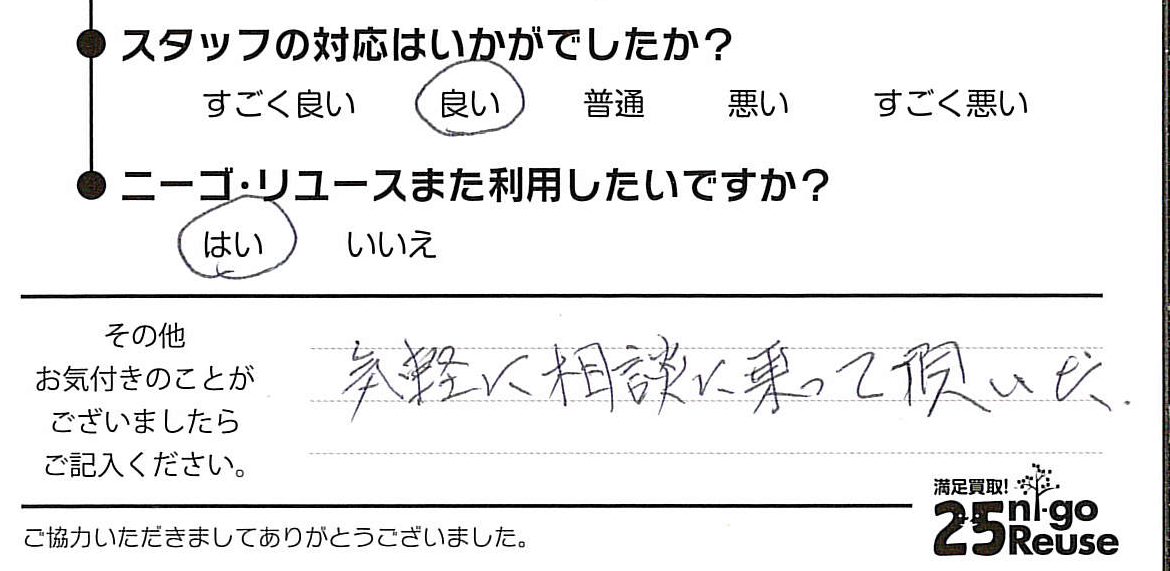 スタッフの対応はいかがでしたか?
すごく良い 良い 普通 悪い すごく悪い
ニーゴ・リユースまた利用したいですか?
はい いいえ
その他
お気付きのことが
ございましたら
ご記入ください。
気軽に相談に乗って頂いた.
満足買取!
25 ni-go
Reuse
ご協力いただきましてありがとうございました。